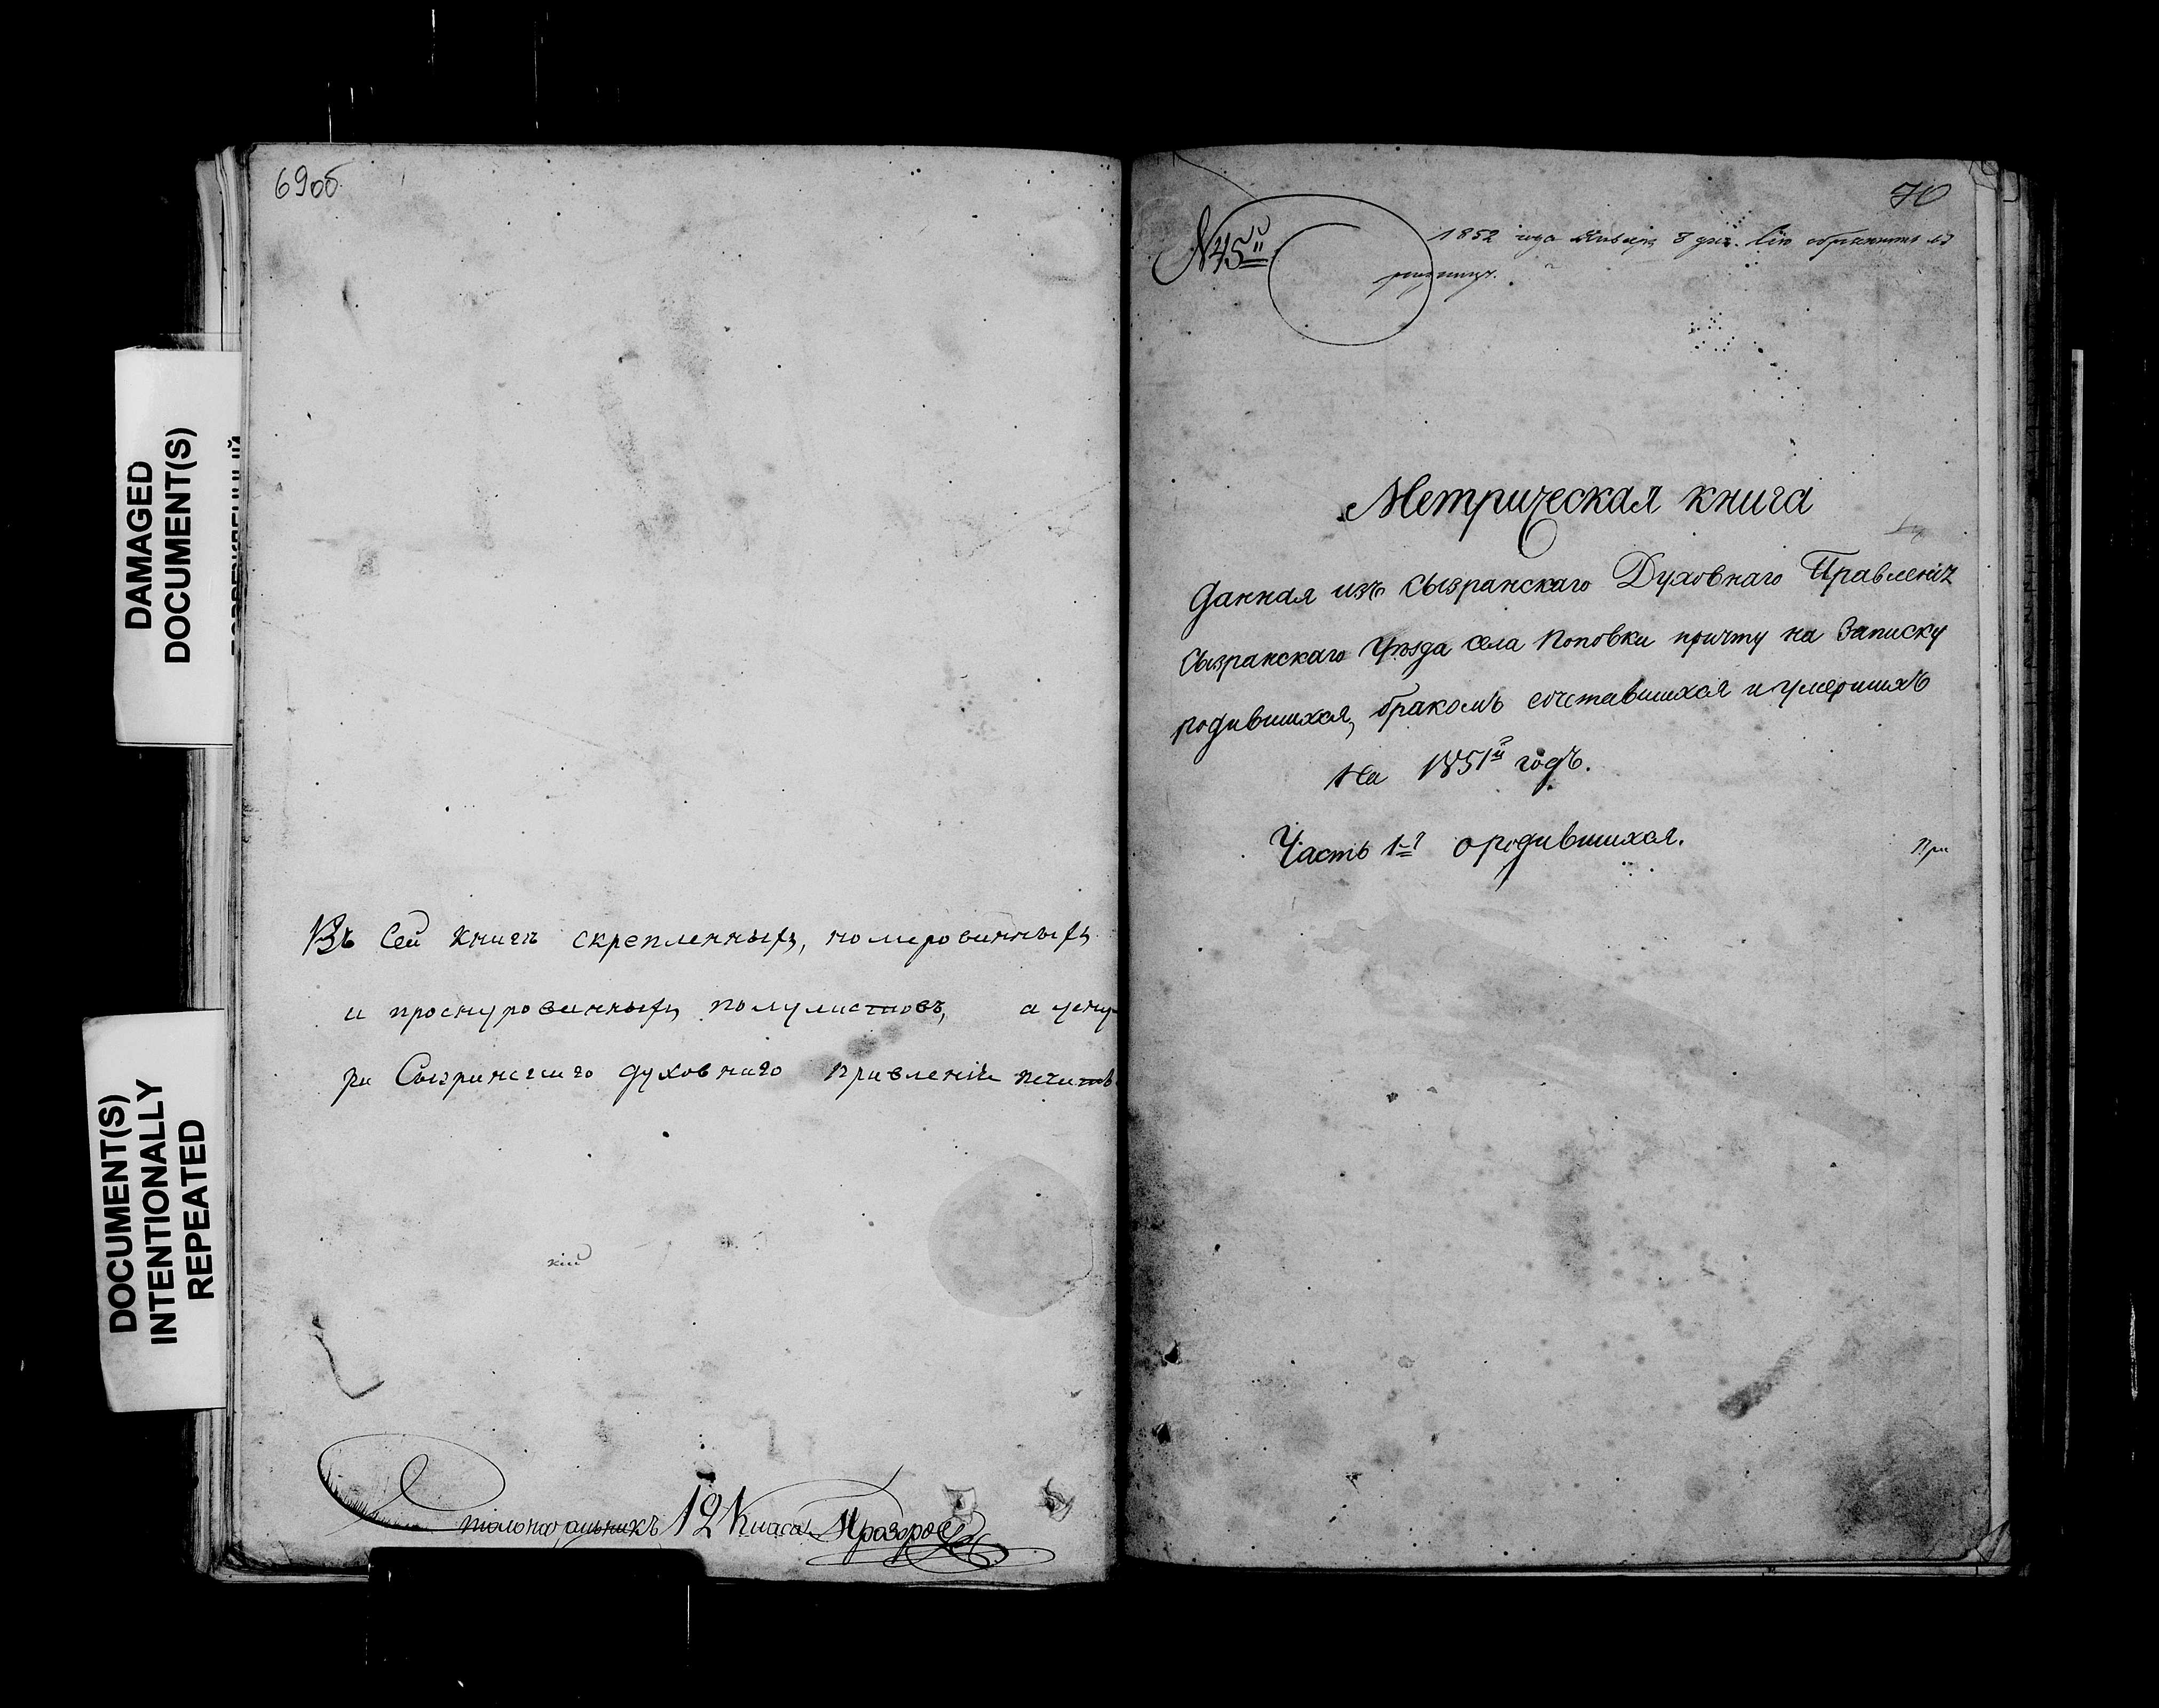 DAMAGED
DOCUMENT(S)
DOCUMENT(S)
INTENTIONALLY
REPEATED
69об
Въ сей книгѣ скрепленныхъ, номерованныхъ
и прошнурованныхъ полулистовъ, а у шну-
ра Сызранскаго духовнаго правленія печать
кій
Столоначальникъ 12 Класа
70
N 45й
1852 года Января 8 дня. Сію
Метрическая книга
Данная изъ Сызранскаго Духовнаго Правленія
Сызранскаго Уѣзда села Поповки причту на записку
родившихся, бракомъ сочетавшихся и умершихъ
На 1851й годъ.
Часть 1я о родившихся.
При